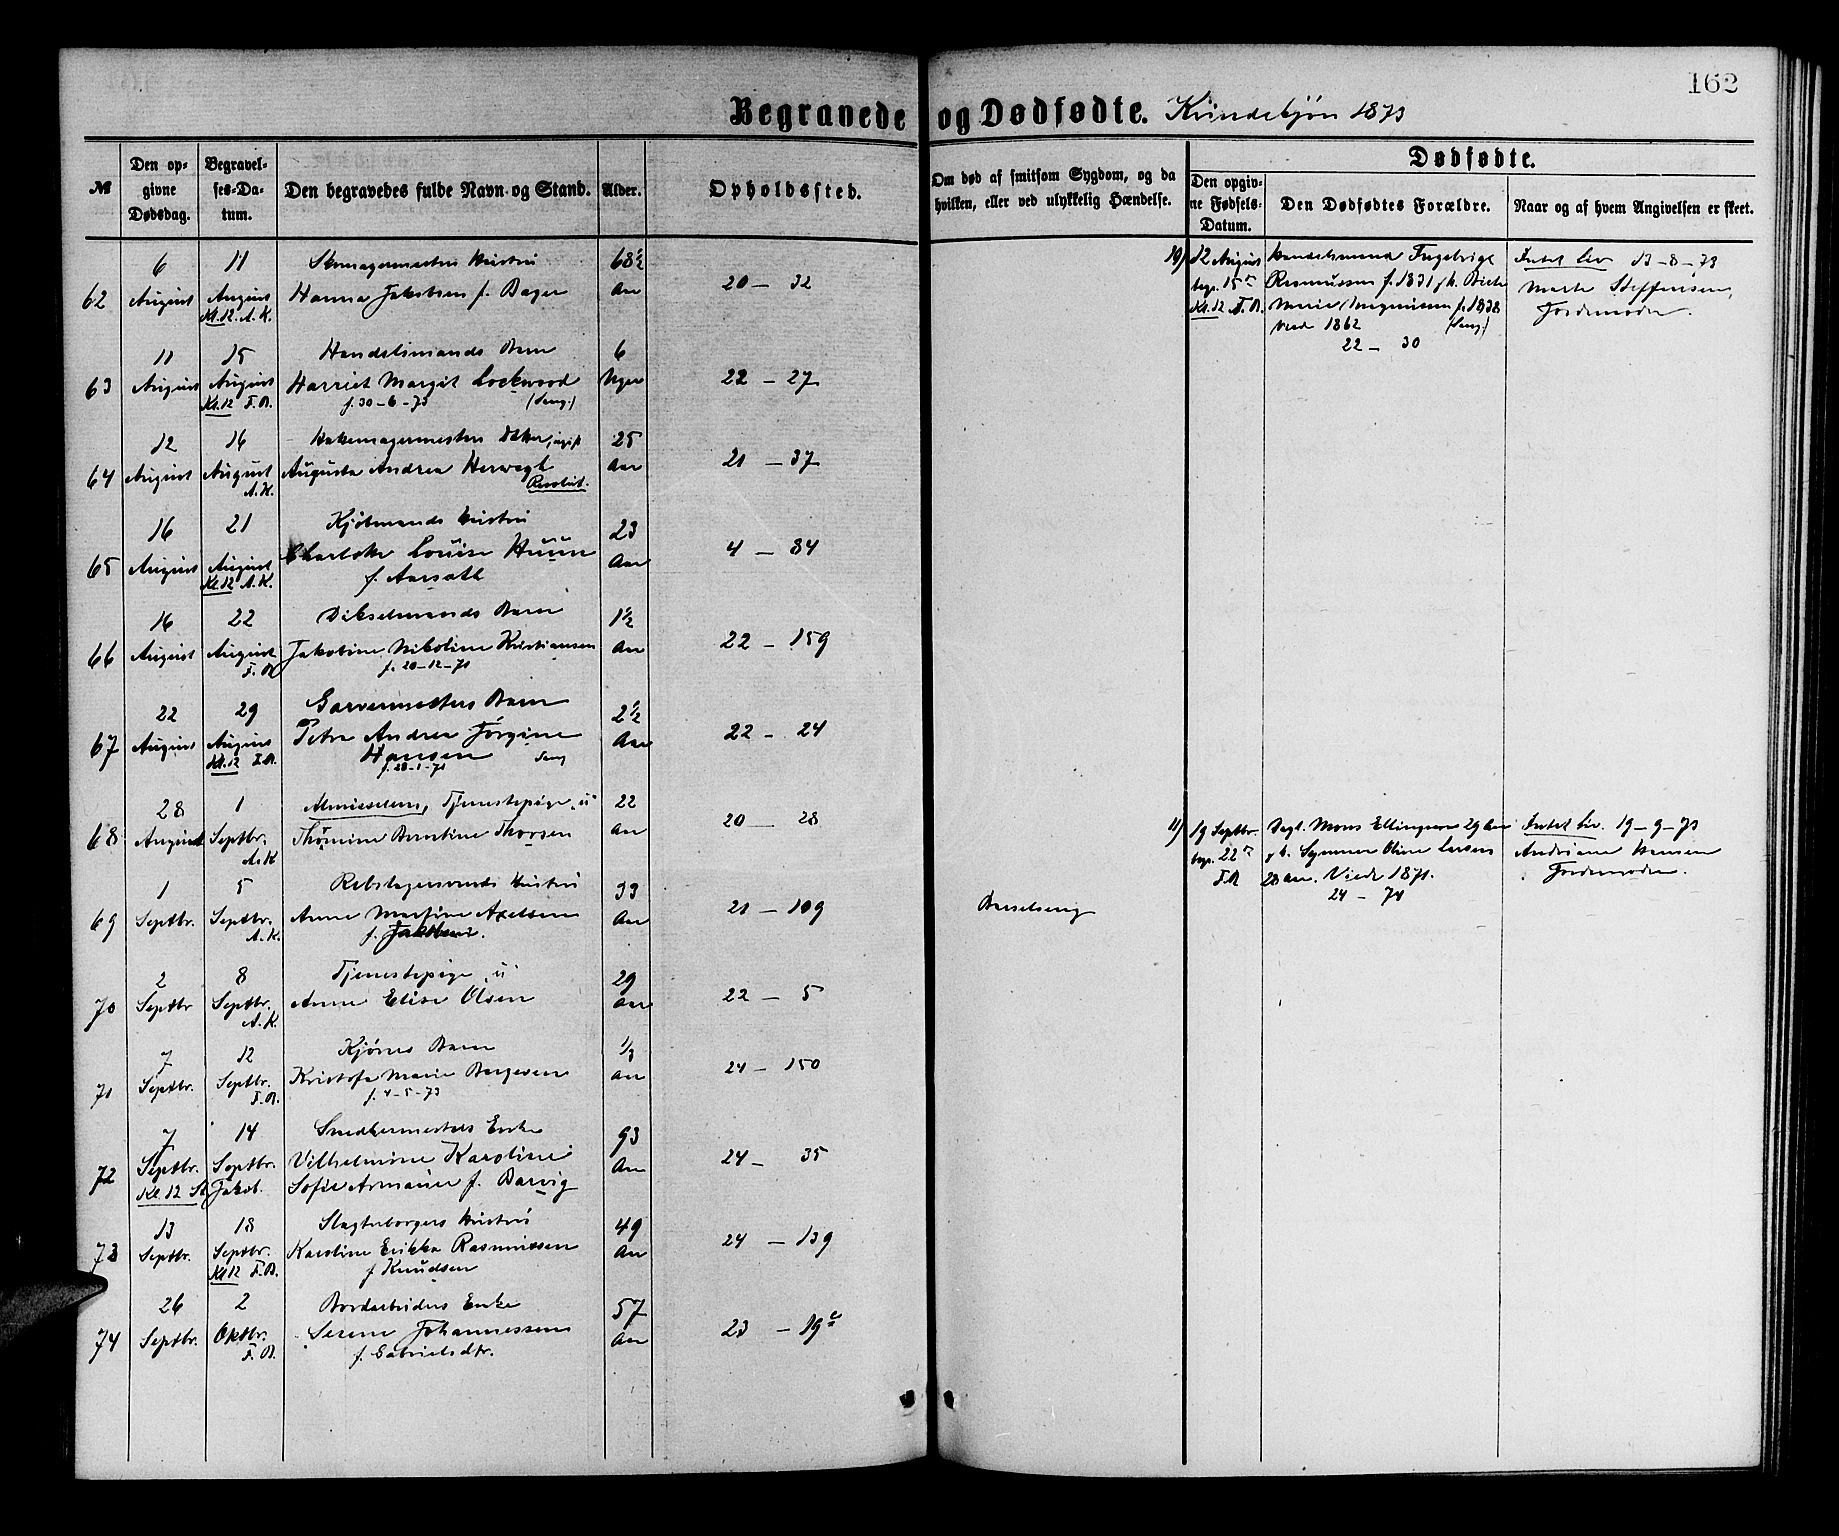 162
Begravede og Dødfødte. Kvindekjøn 1873
№
Den op-
givne
Dødsdag.
Begravel-
ses-Da-
tum.
Den begravedes fulde Navn og Stand.
Alder.
Opholdssted.
Om død af smitsom Sygdom, og da
hvilken, eller ved ulykkelig Hændelse.
Dødfødte.
Den opgiv-
ne Fødsels-
Datum.
Den Dødfødtes Forældre.
Naar og af hvem Angivelsen er skeet.
6 11 Skomagermesters Hustru 68½
62 August August Hanna Jakobsen f. Bager Aar 20 – 32
Kl. 12 A. K.
11 15 Handelsmands Barn 6
63 August August Harriet Margit Lockwood Uger 22 – 27
Kl. 12 F. R. f. 30-6-73 (Tang.)
12 16 Datter, ugift 25
64 August August Augusta Andrea Herwagh Aar 21 – 37
A. K.
16 21 Kjøbmands Hustru 23
65 August August Charlotte Louise Huun Aar 4 – 34
Kl. 12 A. K. f. Aarsæth
16 22 Barn 1½
66 August August Jakobine Nikoline Kristiansen Aar 22 – 159
F. R. f. 20-12-71
22 29 Garvermesters Barn 2½
67 August August Petra Andrea Jørgine Aar 22 – 24
Kl. 12 F. R. Hansen
f. 28-1-71
28 1 Almisselem, Tjenestepige, u 22
68 August Septbr. Thomine Berntine Thorsen Aar 20 – 28
A. K.
1 5 Rebslagersvends Hustru 33
69 Septbr. Septbr. Anne Martine Axelsen Aar 21 – 109 Barselseng
A. K. f. Jakobsen.
2 8 Tjenestepige, u 29
70 Septbr Septbr. Anne Elise Olsen Aar 22 – 5
A. K.
7 12 Kjøres Barn 1/3
71 Septbr. Septbr. Kristofa Marie Børgesen Aar 24 – 150
F. R. f. 4-5-73
7 14 Snedkermesters Enke 93
72 Septbr. Septbr. Vilhelmine Karoline Aar 24 – 35
Kl. 12 St. Jakob. Sofie Armauer f. Barvig
13 18 Slagterborgers Hustru 49
73 Septbr. Septbr. Karoline Erikka Rasmussen Aar 24 – 139
Kl 12 F. R. f Knudsen
26 2 Bordarbeiders Enke 57
74 Septbr. Oktbr. Serine Johannessen Aar 23 – 19c
F. R. f. Gabrielsdtr.
10) 12 August Handelsmand Ingebrigt Intet Liv 13-8-73
begr. 15de Rasmussen f. 1831 Marte Steffensen,
Kl. 12 F. R. Marie Magnussen f. 1838 Jordemoder.
Viede 1862 (Tang.)
22 – 30
11) 19 Septbr. Mons Ellingsen 29 Aar Intet Liv. 19-9-73
begr. 22de Synneve Oline Larsen Andriane Hansen
F. R 28 Aar. Viede 1871. Jordemoder.
24 – 74